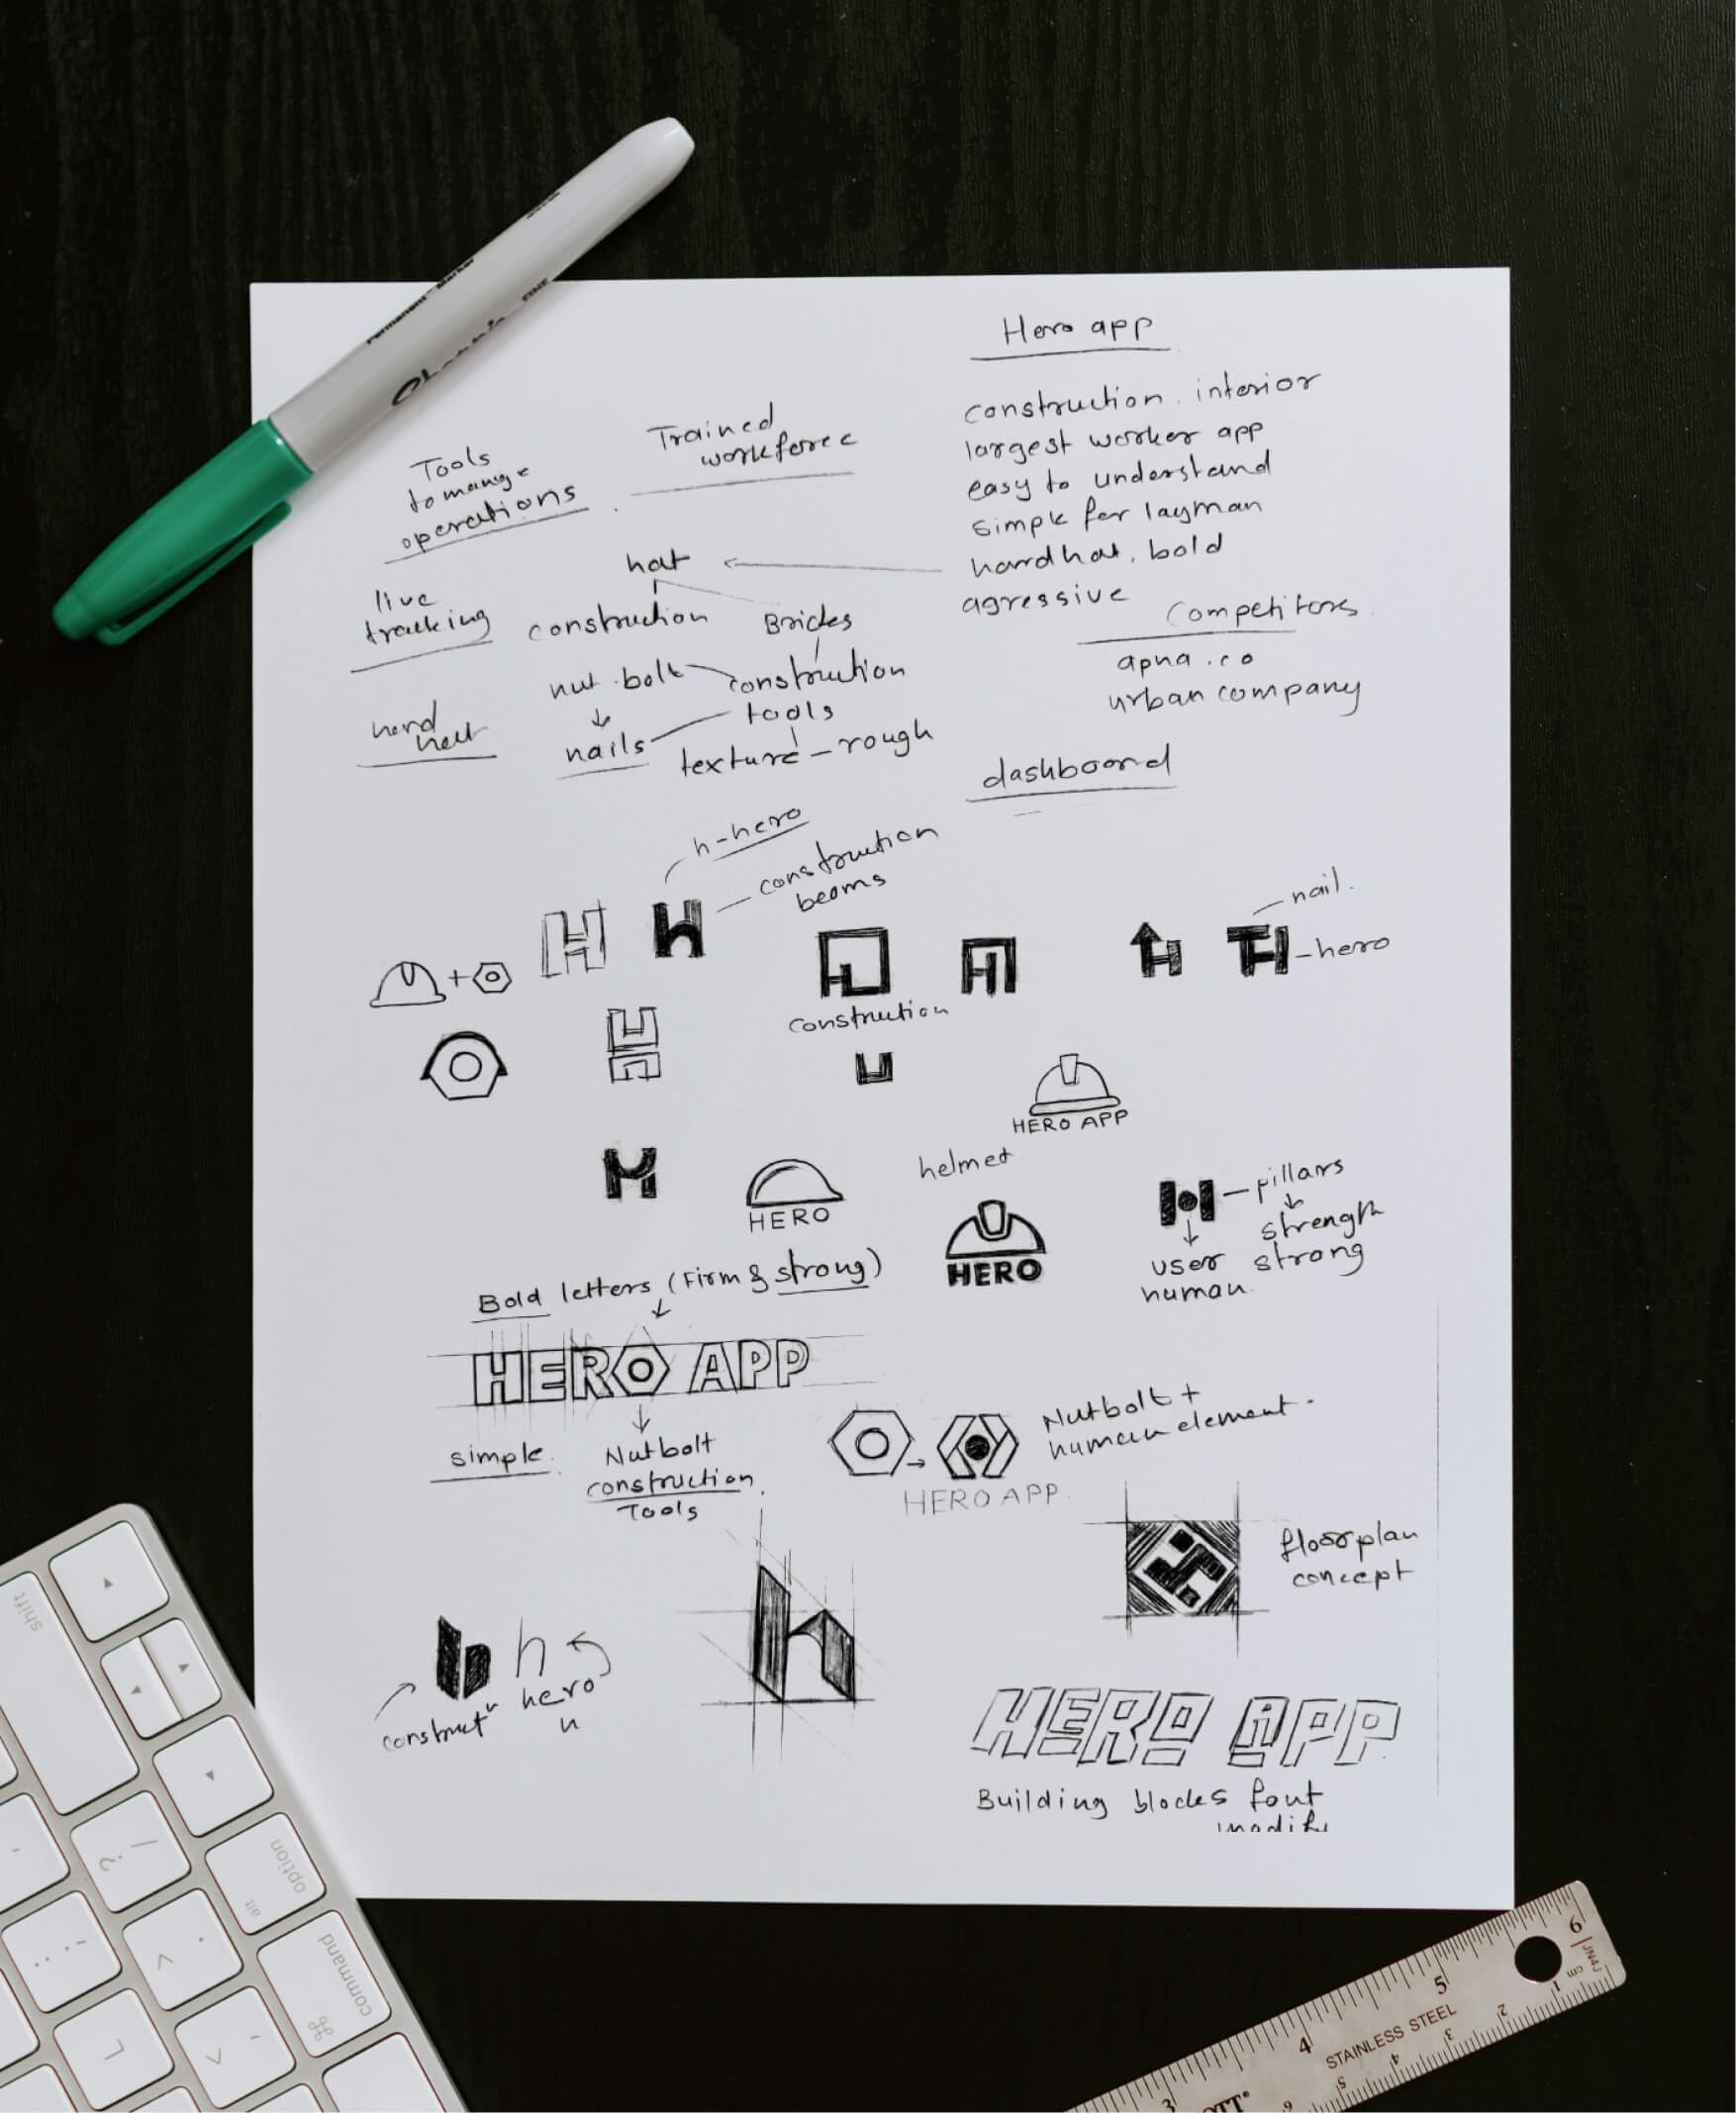 Permanent Marker
FINE
Hero app
construction. interior
largest worker app
easy to understand
simple for layman
hardhat. bold
agressive
Competitors
apna.co
urban company
dashboard
Trained
workforce
Tools
to manage
operations
hat
live
tracking
construction
Bricks
nut.bolt
construction
tools
nails
texture - rough
h-hero
construction
beams
nail.
-hero
+
construction
HERO APP
helmet
HERO
HERO
pillars
strength
strong
user
human
Bold letters (Firm & strong)
HERO APP
simple.
Nutbolt
construction
Tools
Nutbolt +
human element.
HERO APP.
floorplan
concept
h
hero
construct
HERO APP
Building blocks font
modify
shift
option
alt
command
⌘
6
5
4
3
STAINLESS STEEL
cm
1
2
3
4
5
6